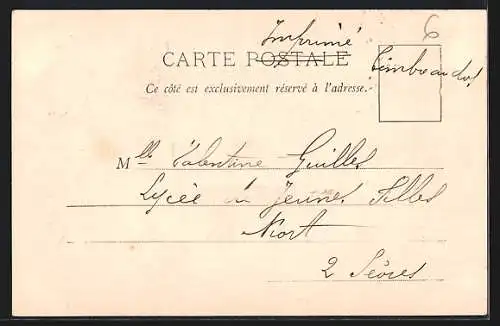 Imprimé
6
CARTE POSTALE
Timbre au dos
Ce côté est exclusivement réservé à l'adresse.
Mlle Valentine Guilles
Lycée de Jeunes Filles
Niort
2 Sèvres